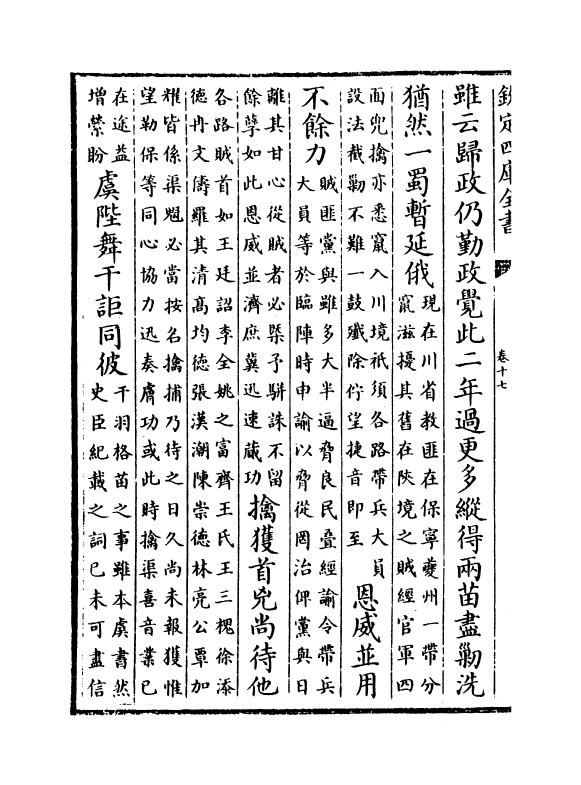 欽定四庫全書
卷十七
雖云歸政仍勤政覺此二年過更多縱得兩苗盡剿洗
猶然一蜀暫延俄
現在川省教匪在保寧夔州一帶分
竄滋擾其舊在陜境之賊經官軍四
面兜擒亦悉竄入川境祇須各路帶兵大員
設法截剿不難一鼓殲除佇望捷音即至
恩威並用
不餘力
賊匪黨與雖多大半逼脅良民疊經諭令帶兵
大員等於臨陣時申諭以脅從罔治俾黨與日
離其甘心從賊者必槩予駢誅不留
餘孽如此恩威並濟庶冀迅速蕆功
擒獲首兇尚待他
各路賊首如王廷詔李全姚之富齊王氏王三槐徐添
德冉文儔羅其清高均德張漢潮陳崇德林亮公覃加
耀皆係渠魁必當按名擒捕乃待之日久尚未報獲惟
望勒保等同心協力迅奏膚功或此時擒渠喜音業已
在途益
增縈盼
虞陛舞干詎同彼
干羽格苗之事雖本虞書然
史臣紀載之詞已未可盡信